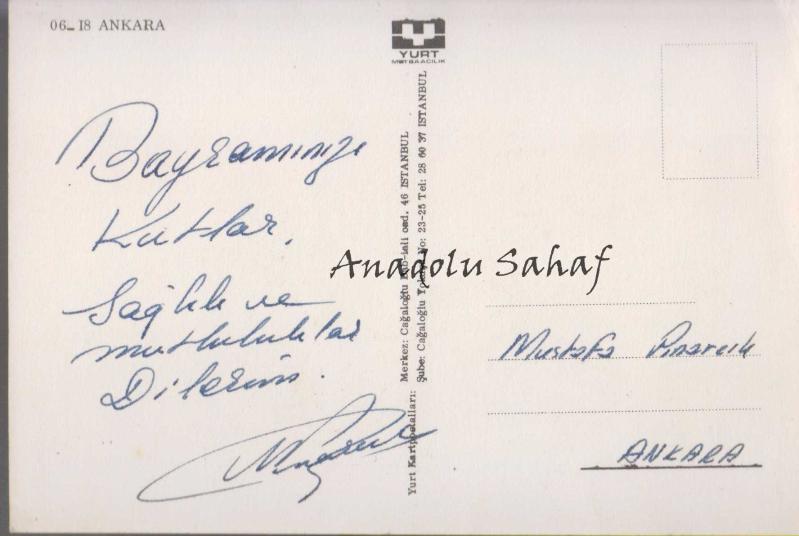 06-18 ANKARA
YURT
MATBAACILIK
Bayramınızı
Kutlar,
Sağlık ve
mutluluklar
Dilerim.
Yurt Kartpostalları:
Merkez: Cağaloğlu cad. 46 ISTANBUL
Şube: Cağaloğlu No: 23-25 Tel: 28 60 37 ISTANBUL
Anadolu Sahaf
Mustafa Pınarcık
ANKARA